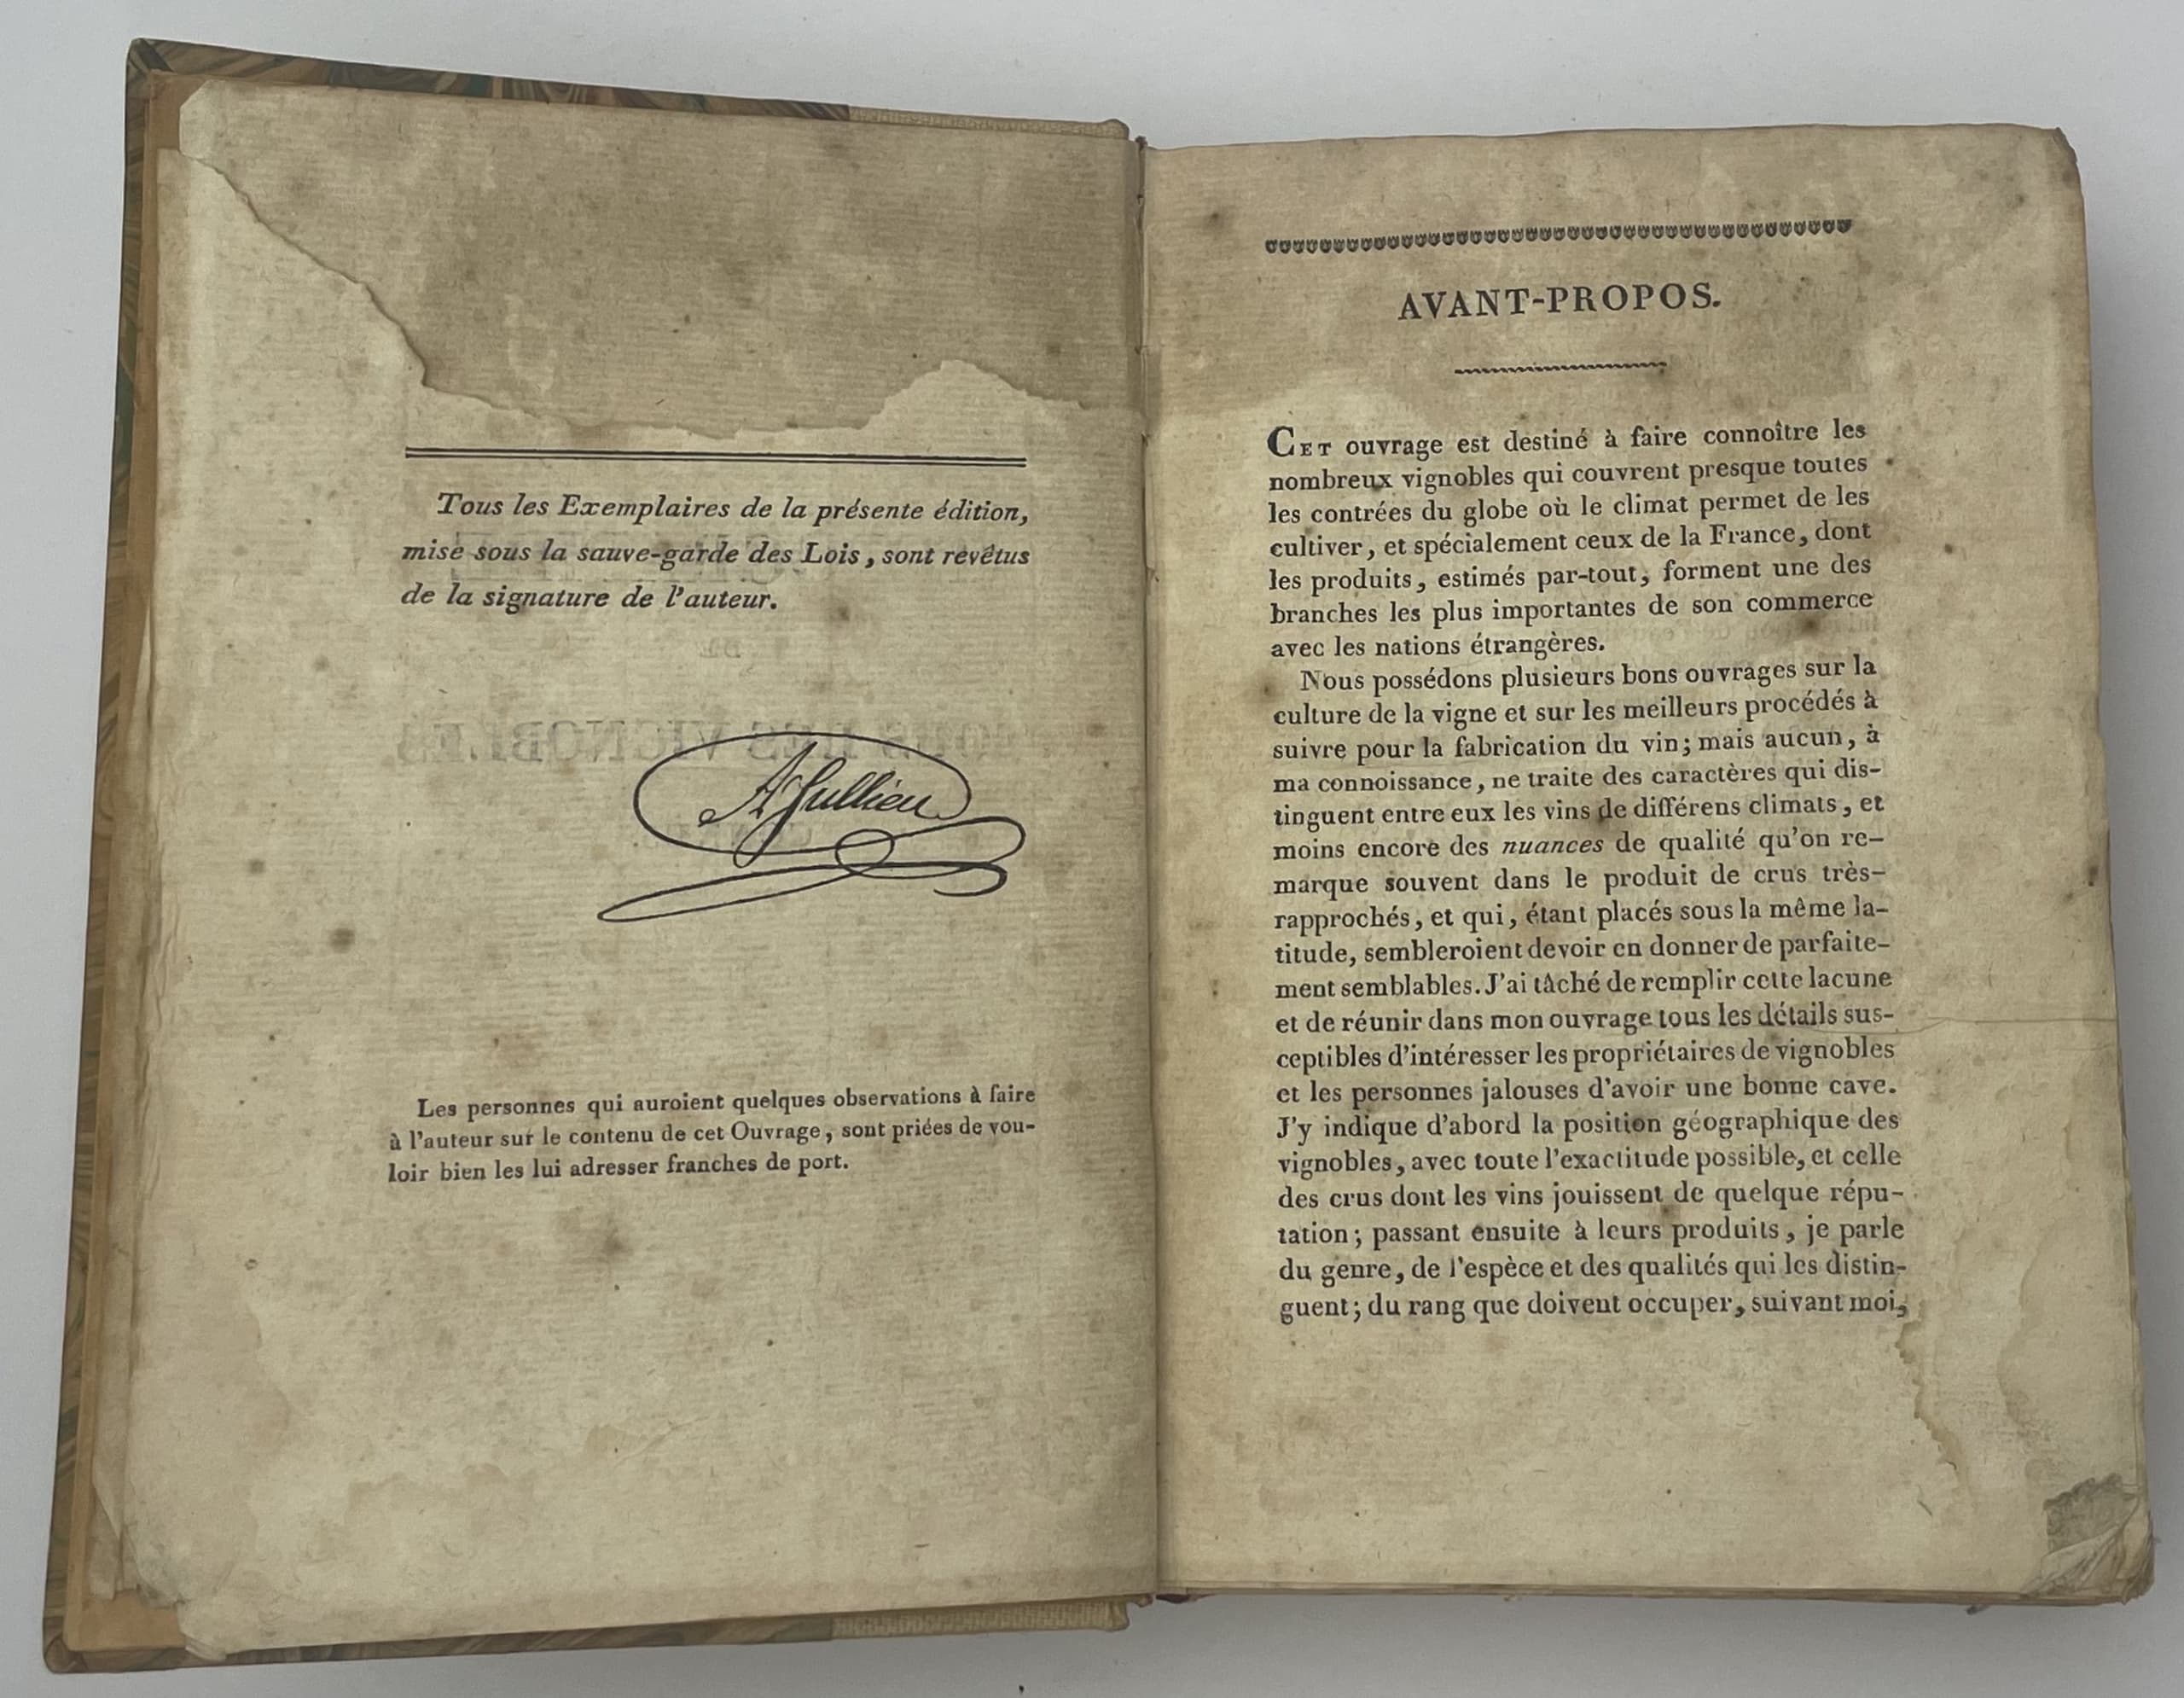 Tous les Exemplaires de la présente édition,
mise sous la sauve-garde des Lois, sont revêtus
de la signature de l'auteur.
A Jullien
Les personnes qui auroient quelques observations à faire
à l'auteur sur le contenu de cet Ouvrage, sont priées de vou-
loir bien les lui adresser franches de port.
AVANT-PROPOS.
CET ouvrage est destiné à faire connoître les
nombreux vignobles qui couvrent presque toutes
les contrées du globe où le climat permet de les
cultiver, et spécialement ceux de la France, dont
les produits, estimés par-tout, forment une des
branches les plus importantes de son commerce
avec les nations étrangères.
Nous possédons plusieurs bons ouvrages sur la
culture de la vigne et sur les meilleurs procédés à
suivre pour la fabrication du vin; mais aucun, à
ma connoissance, ne traite des caractères qui dis-
tinguent entre eux les vins de différens climats, et
moins encore des nuances de qualité qu'on re-
marque souvent dans le produit de crus très-
rapprochés, et qui, étant placés sous la même la-
titude, sembleroient devoir en donner de parfaite-
ment semblables. J'ai tâché de remplir cette lacune
et de réunir dans mon ouvrage tous les détails sus-
ceptibles d'intéresser les propriétaires de vignobles
et les personnes jalouses d'avoir une bonne cave.
J'y indique d'abord la position géographique des
vignobles, avec toute l'exactitude possible, et celle
des crus dont les vins jouissent de quelque répu-
tation; passant ensuite à leurs produits, je parle
du genre, de l'espèce et des qualités qui les distin-
guent; du rang que doivent occuper, suivant moi,